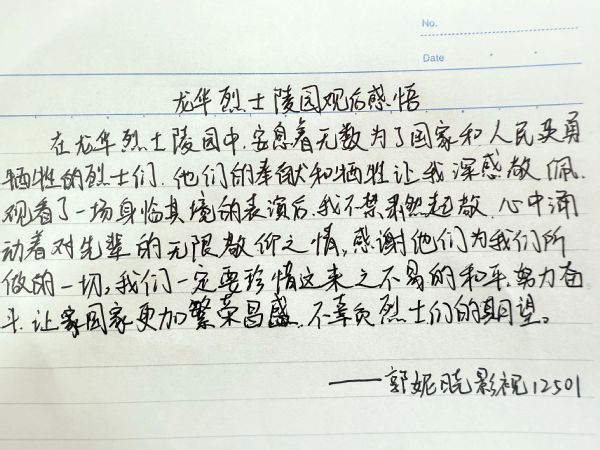 No.
Date
龙华烈士陵园观后感悟
在龙华烈士陵园中,安息着无数为了国家和人民英勇
牺牲的烈士们.他们的奉献和牺牲让我深感敬佩.
观看了一场身临其境的表演后,我不禁肃然起敬.心中涌
动着对先辈的无限敬仰之情,感谢他们为我们所
做的一切,我们一定要珍惜这来之不易的和平.努力奋
斗.让家国家更加繁荣昌盛.不辜负烈士们的期望。
——郭妮晓影视12501